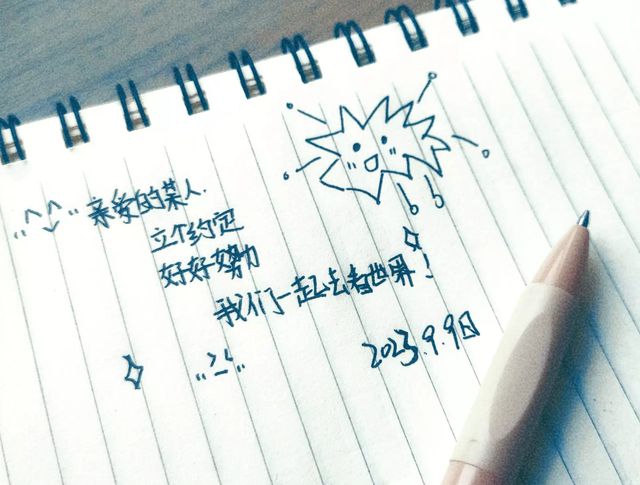 亲爱的某人.
立个约定
好好努力
我们一起去看世界！
2023.9.9日